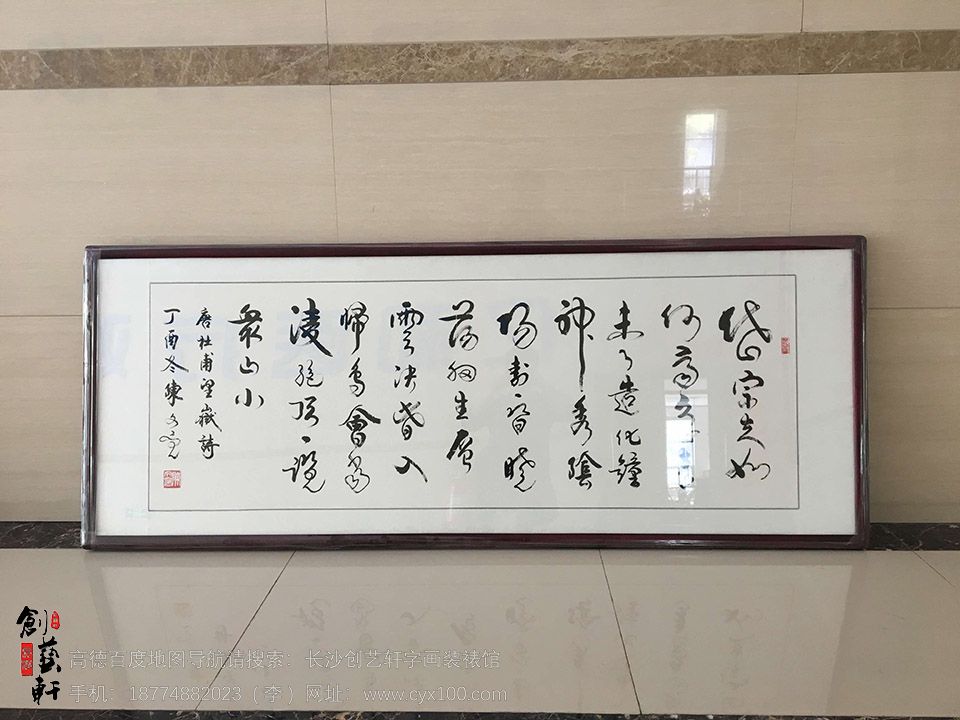 岱宗夫如
何齊魯青
未了造化鐘
神秀陰
陽割昏曉
蕩胸生層
雲決眥入
歸鳥會當
淩絕頂一覽
衆山小
唐杜甫望嶽詩
丁酉冬陳文
創藝軒
高德百度地图导航请搜索：长沙创艺轩字画装裱馆
手机：18774882023（李）网址：www.cyx100.com